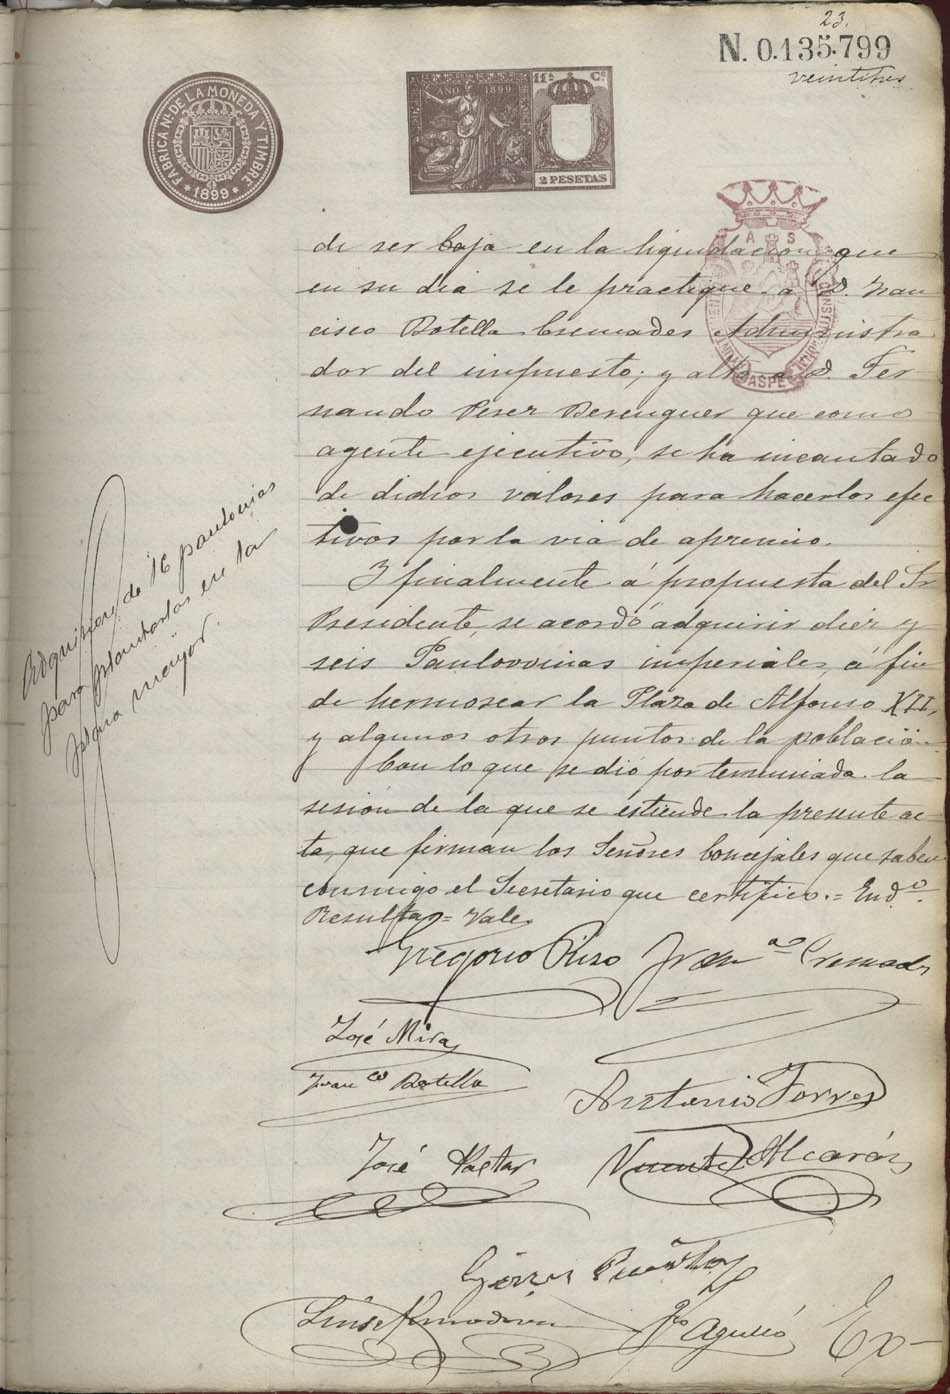 23.
N. 0.135.799
veintitres
FABRICA NL. DE LA MONEDA Y TIMBRE
1899
AÑO 1899
11ª Cª
2 PESETAS
de ser baja en la liquidacion que
en su dia se le practique a D. Fran
cisco Botella Cremades Administra
dor del impuesto; y alta a D. Fer
nando Perez Berenguer que como
agente ejecutivo, se ha incautado
de dichos valores para hacerlos efec
tivos por la via de apremio.
Y finalmente á propuesta del Sr
Presidente, se acordó adquirir diez y
seis Paulovnias imperiales, á fin
de hermosear la Plaza de Alfonso XII,
y algunos otros puntos de la población.
Con lo que se dió por terminada la
sesion de la que se estiende la presente ac-
ta, que firman los Señores Concejales que saben
conmigo el Secretario que certifico.= End.º
Resulta= Vale
Adquisicion de 16 paulonias
para plantarlas en la
plaza mayor.
Gregorio Rizo
Fran.co Cremades
José Mira
Fran.co Botella
Antonio Torres
José Pastor
Vicente Alcaráz
Luis Almodovar
Fco Agulló
Ex-